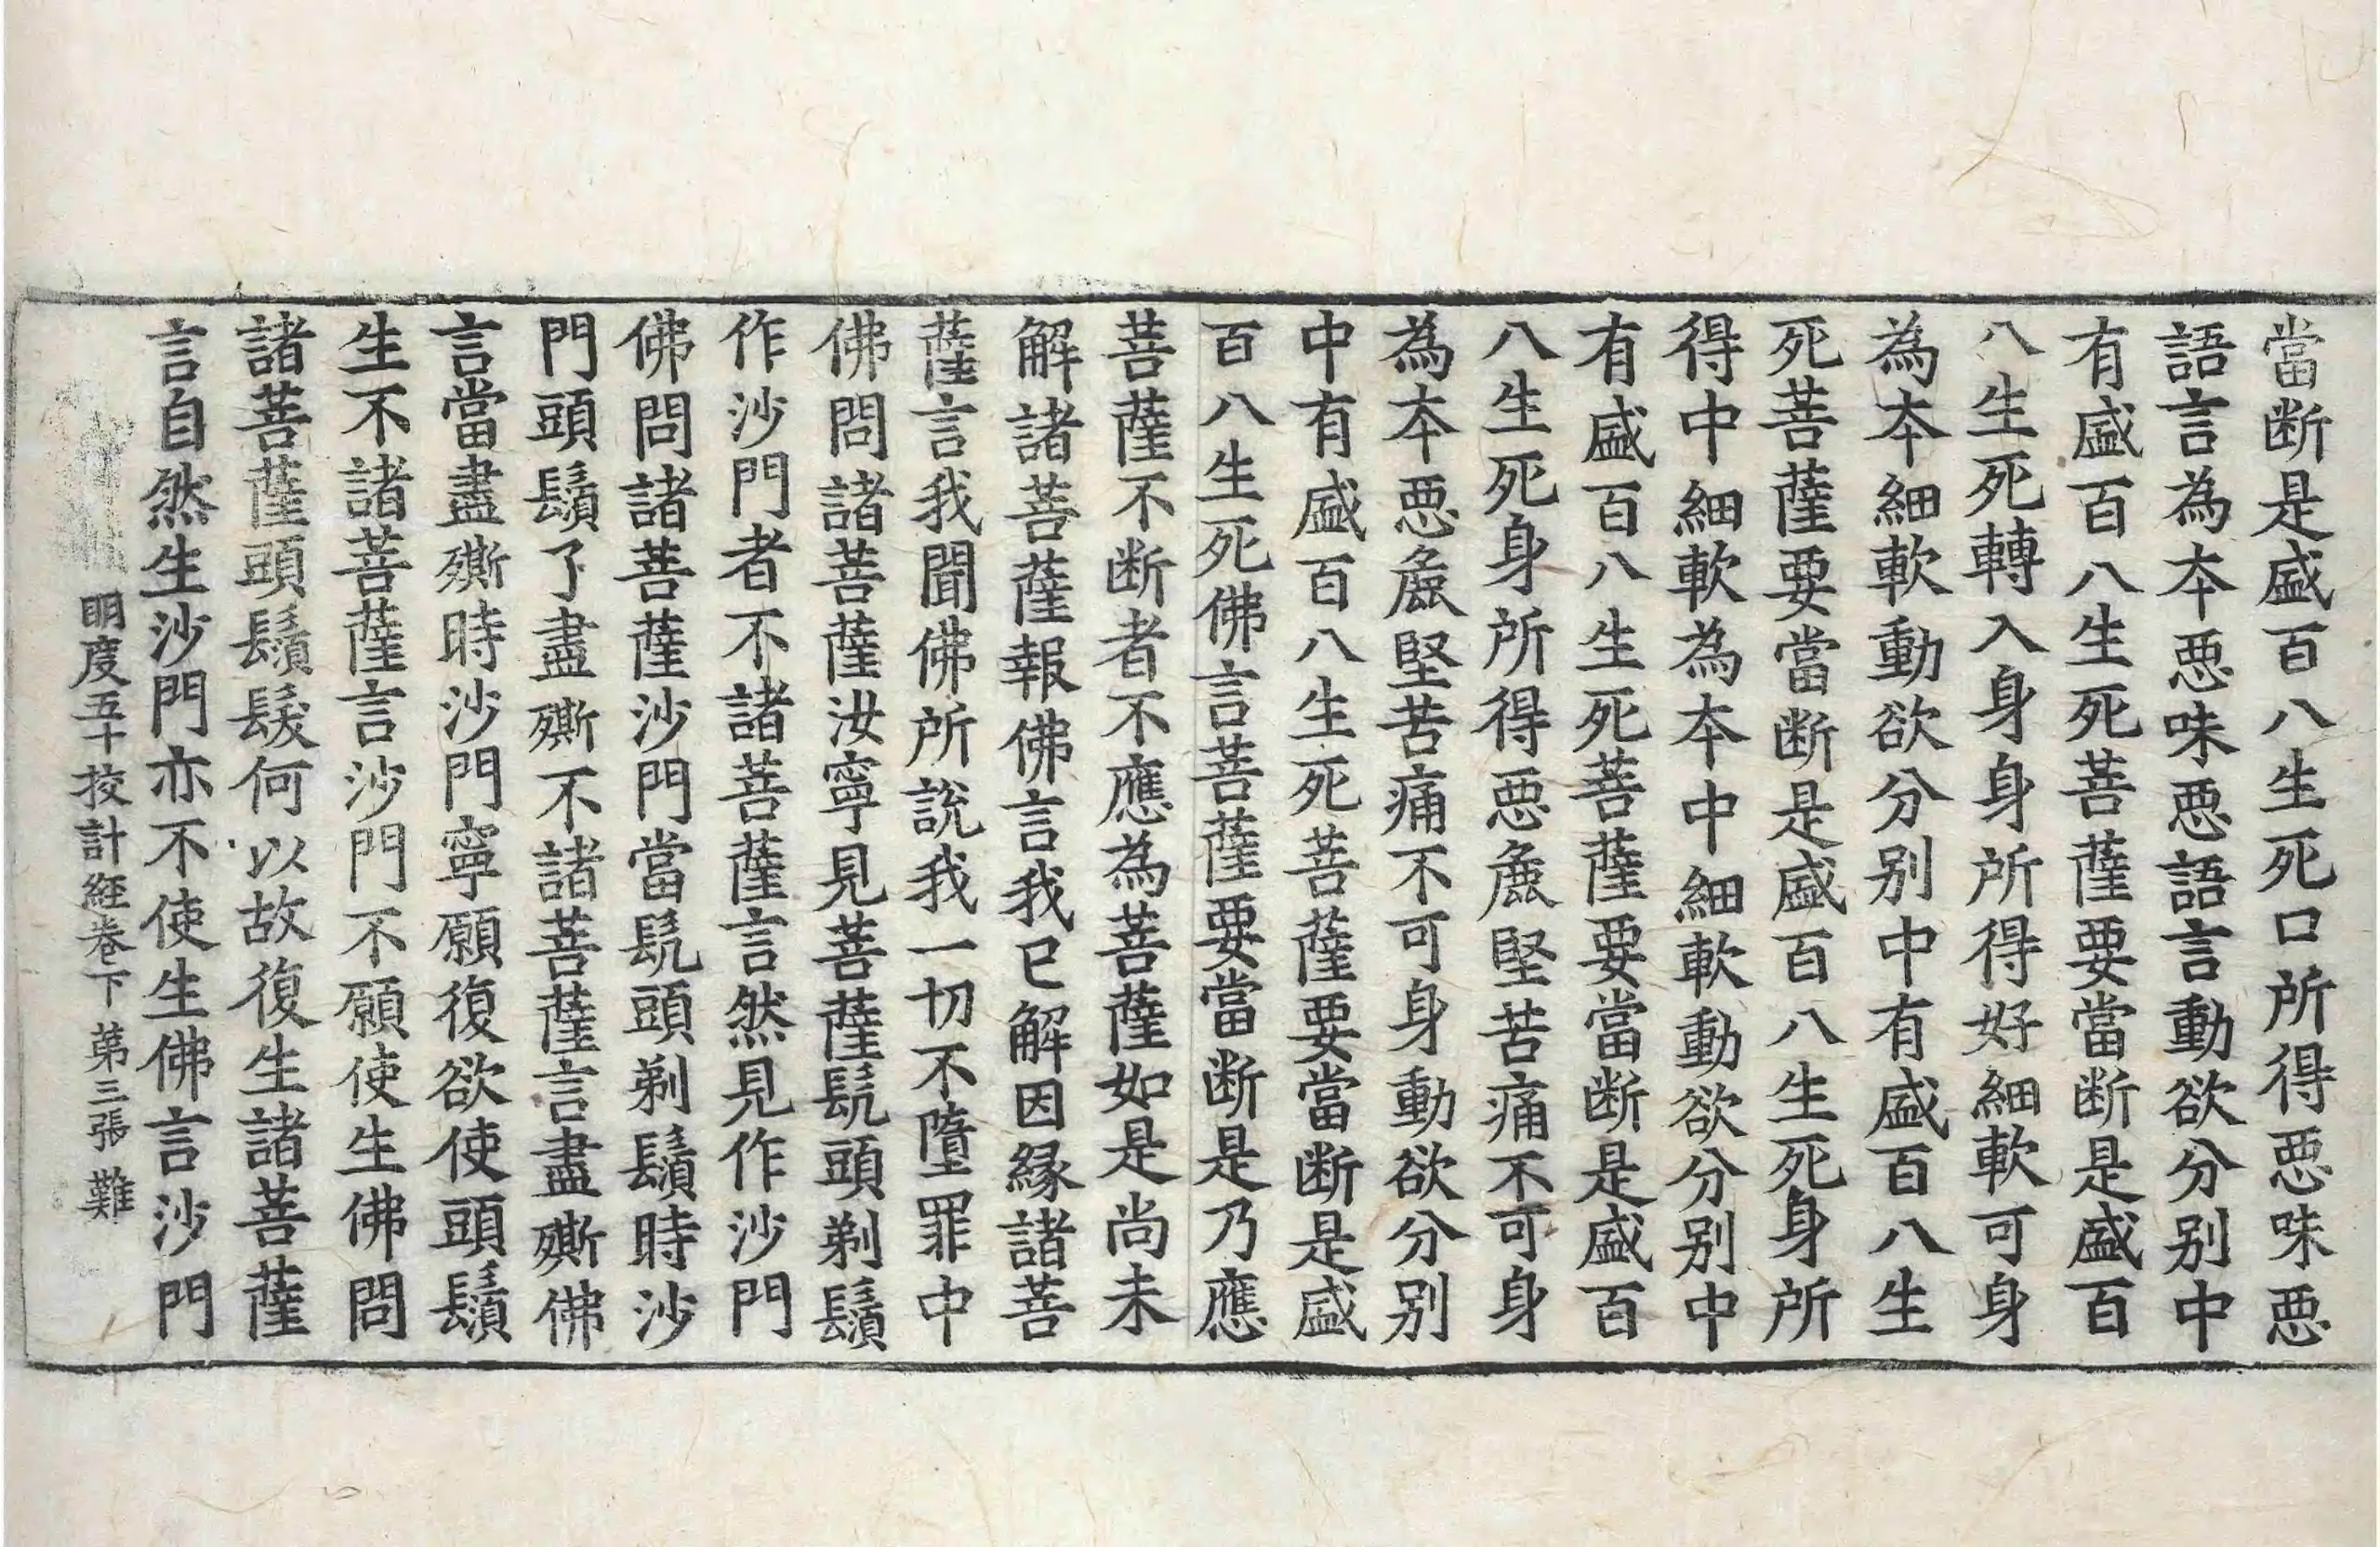 當断是盛百八生死口所得惡味惡
語言為本惡味惡語言動欲分别中
有盛百八生死菩薩要當断是盛百
八生死轉入身身所得好細軟可身
為本細軟動欲分别中有盛百八生
死菩薩要當断是盛百八生死身所
得中細軟為本中細軟動欲分别中
有盛百八生死菩薩要當断是盛百
八生死身所得惡麁堅苦痛不可身
為本惡麁堅苦痛不可身動欲分别
中有盛百八生死菩薩要當断是盛
百八生死佛言菩薩要當断是乃應
菩薩不断者不應為菩薩如是尚未
解諸菩薩報佛言我已解因緣諸菩
薩言我聞佛所說我一切不墮罪中
佛問諸菩薩汝寧見菩薩髡頭剃鬚
作沙門者不諸菩薩言然見作沙門
佛問諸菩薩沙門當髡頭剃鬚時沙
門頭鬚了盡㒋不諸菩薩言盡㒋佛
言當盡㒋時沙門寧願復欲使頭鬚
生不諸菩薩言沙門不願使生佛問
諸菩薩頭鬚髮何以故復生諸菩薩
言自然生沙門亦不使生佛言沙門
明度五十挍計經卷下 第三張 難